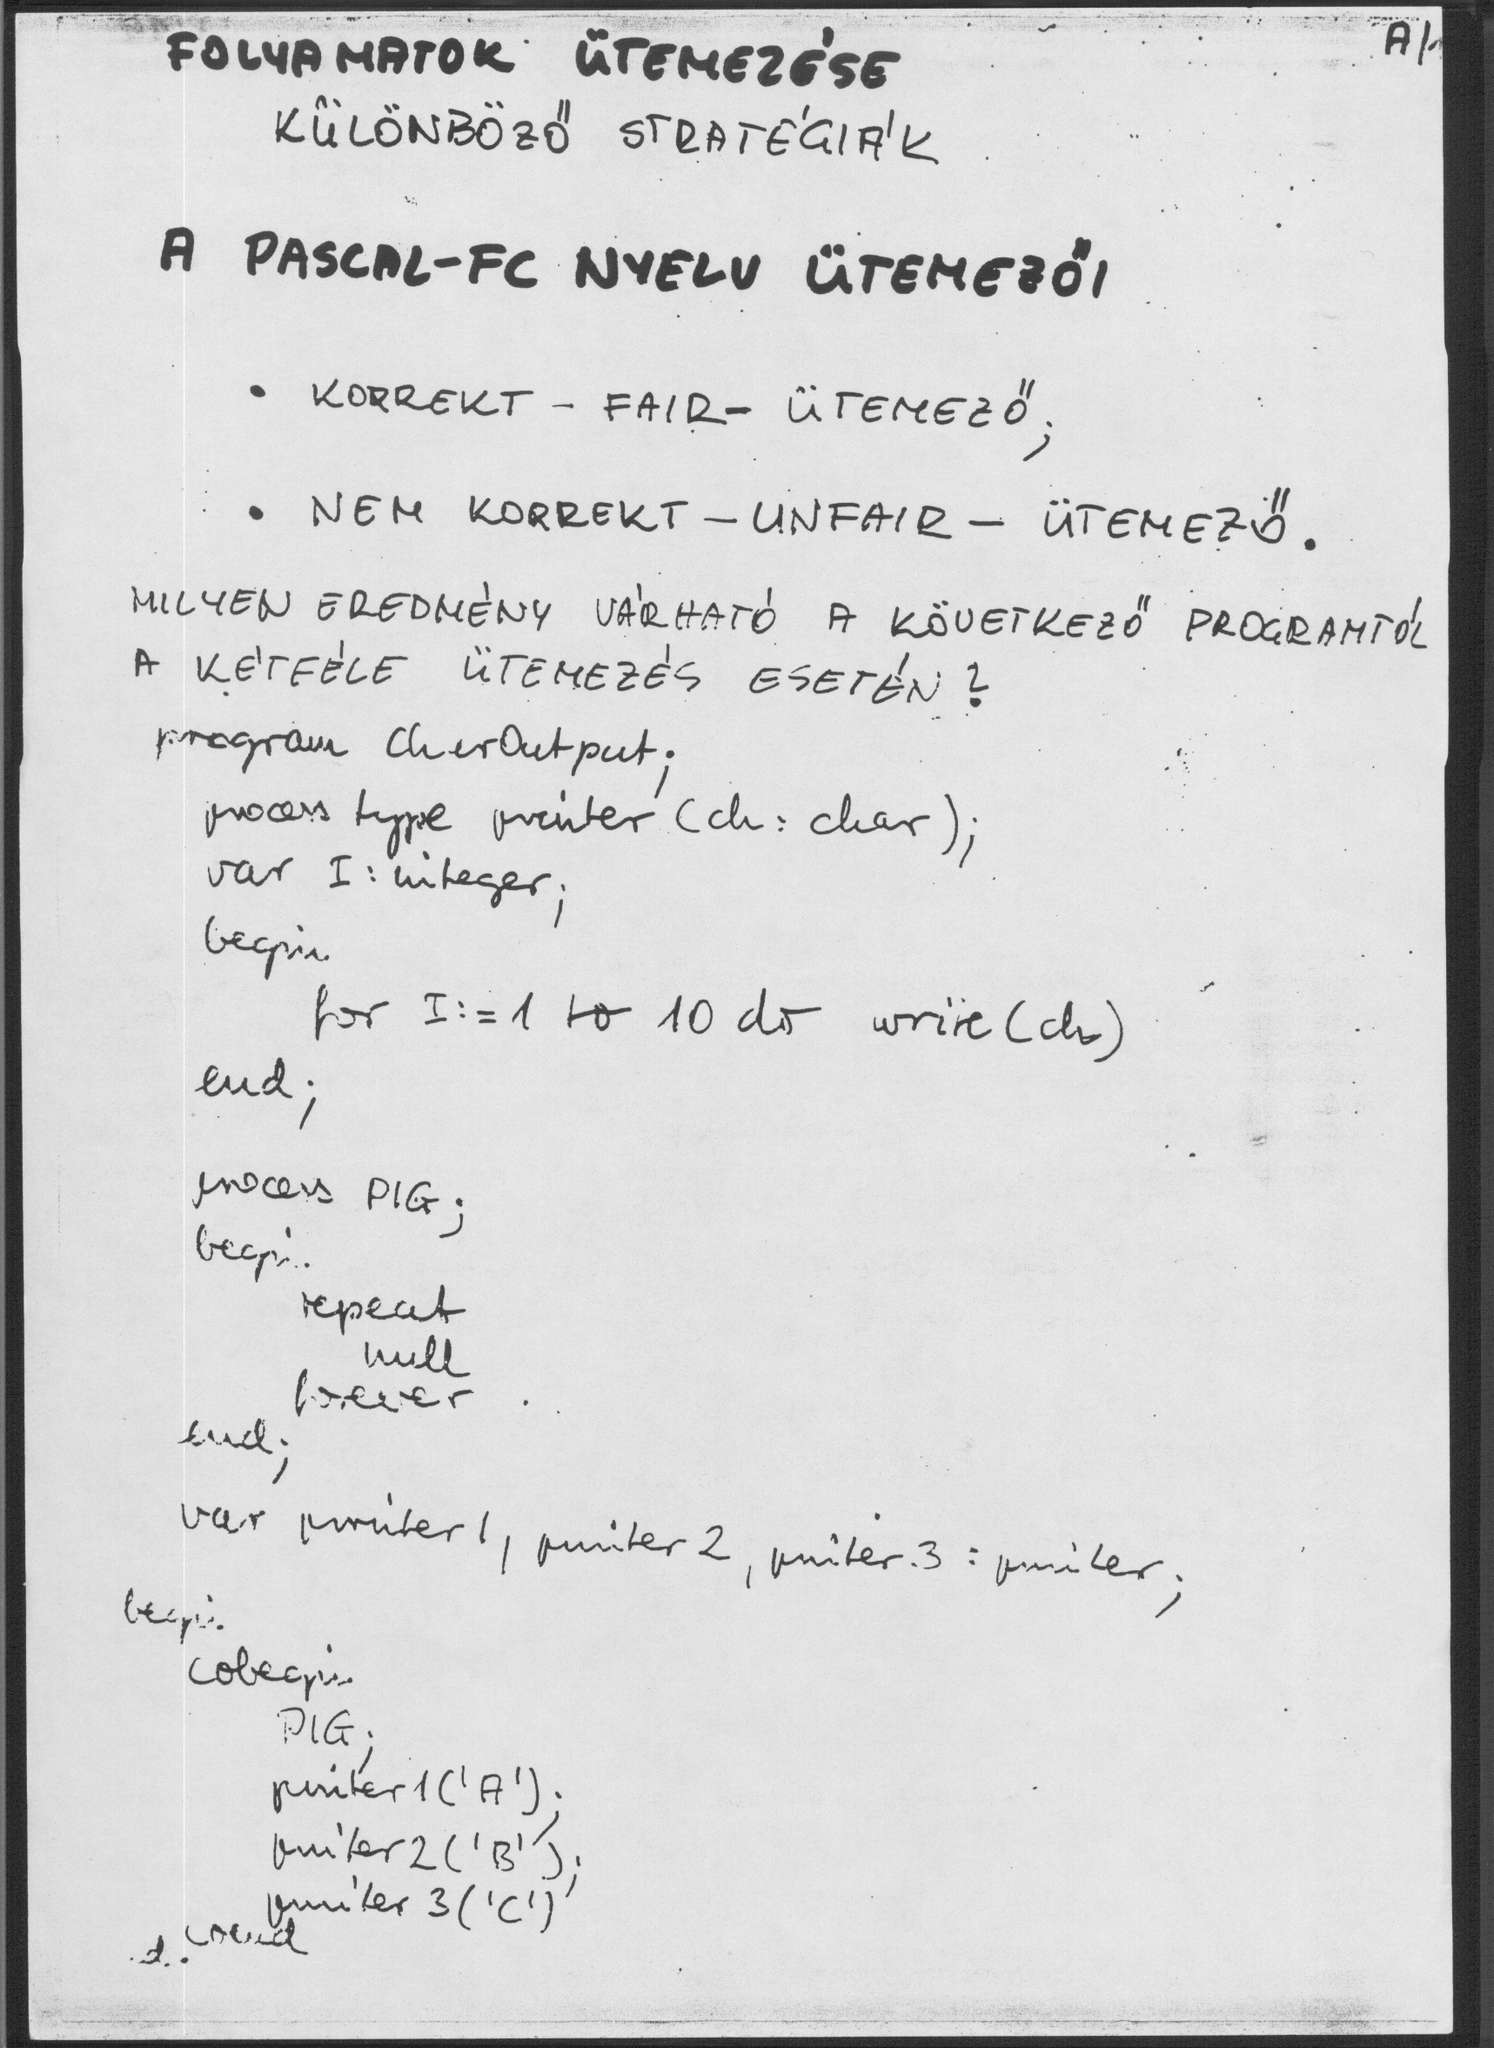 A/1
FOLYAMATOK ÜTEMEZÉSE
KÜLÖNBÖZŐ STRATÉGIÁK
A PASCAL-FC NYELV ÜTEMEZŐI
• KORREKT - FAIR - ÜTEMEZŐ;
• NEM KORREKT - UNFAIR - ÜTEMEZŐ.
MILYEN EREDMÉNY VÁRHATÓ A KÖVETKEZŐ PROGRAMTÓL
A KÉTFÉLE ÜTEMEZÉS ESETÉN?
program CherOutput;
process type printer (ch: char);
var I: integer;
begin
for I:=1 to 10 do write(ch)
end;
process PIG;
begin
repeat
null
forever
end;
var printer1, printer2, printer3: printer;
begin
cobegin
PIG;
printer1('A');
printer2('B');
printer3('C')
coend